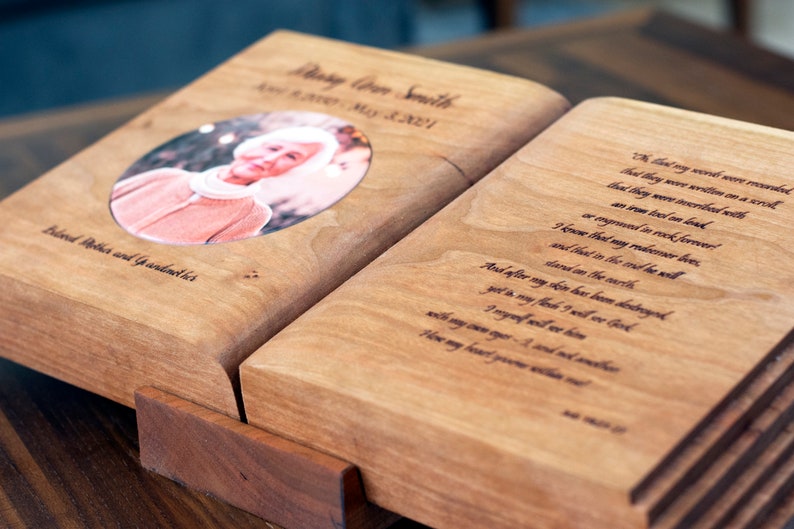 Mary Ann Smith
April 9, - May 3, 2021
Beloved Mother and Grandmother
"Oh, that my words were recorded,
that they were written on a scroll,
that they were inscribed with
an iron tool on lead,
or engraved in rock forever!
I know that my redeemer lives,
and that in the end he will
stand on the earth.
And after my skin has been destroyed,
yet in my flesh I will see God;
I myself will see him
with my own eyes - I, and not another.
How my heart yearns within me!